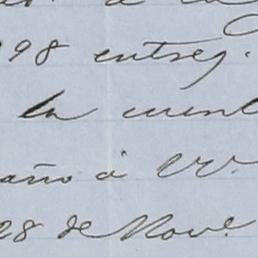 98 entreg.
la cuent
año à VV.
28 de Nov.